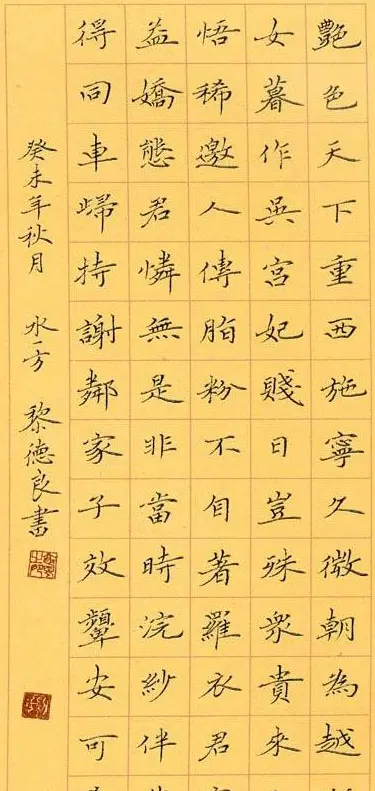 艷色天下重西施寧久微朝為越
女暮作吳宮妃賤日豈殊眾貴來
悟稀邀人傳脂粉不自著羅衣君
益嬌態君憐無是非當時浣紗伴
得同車歸持謝鄰家子效顰安可
癸未年秋月 水一方 黎德良書